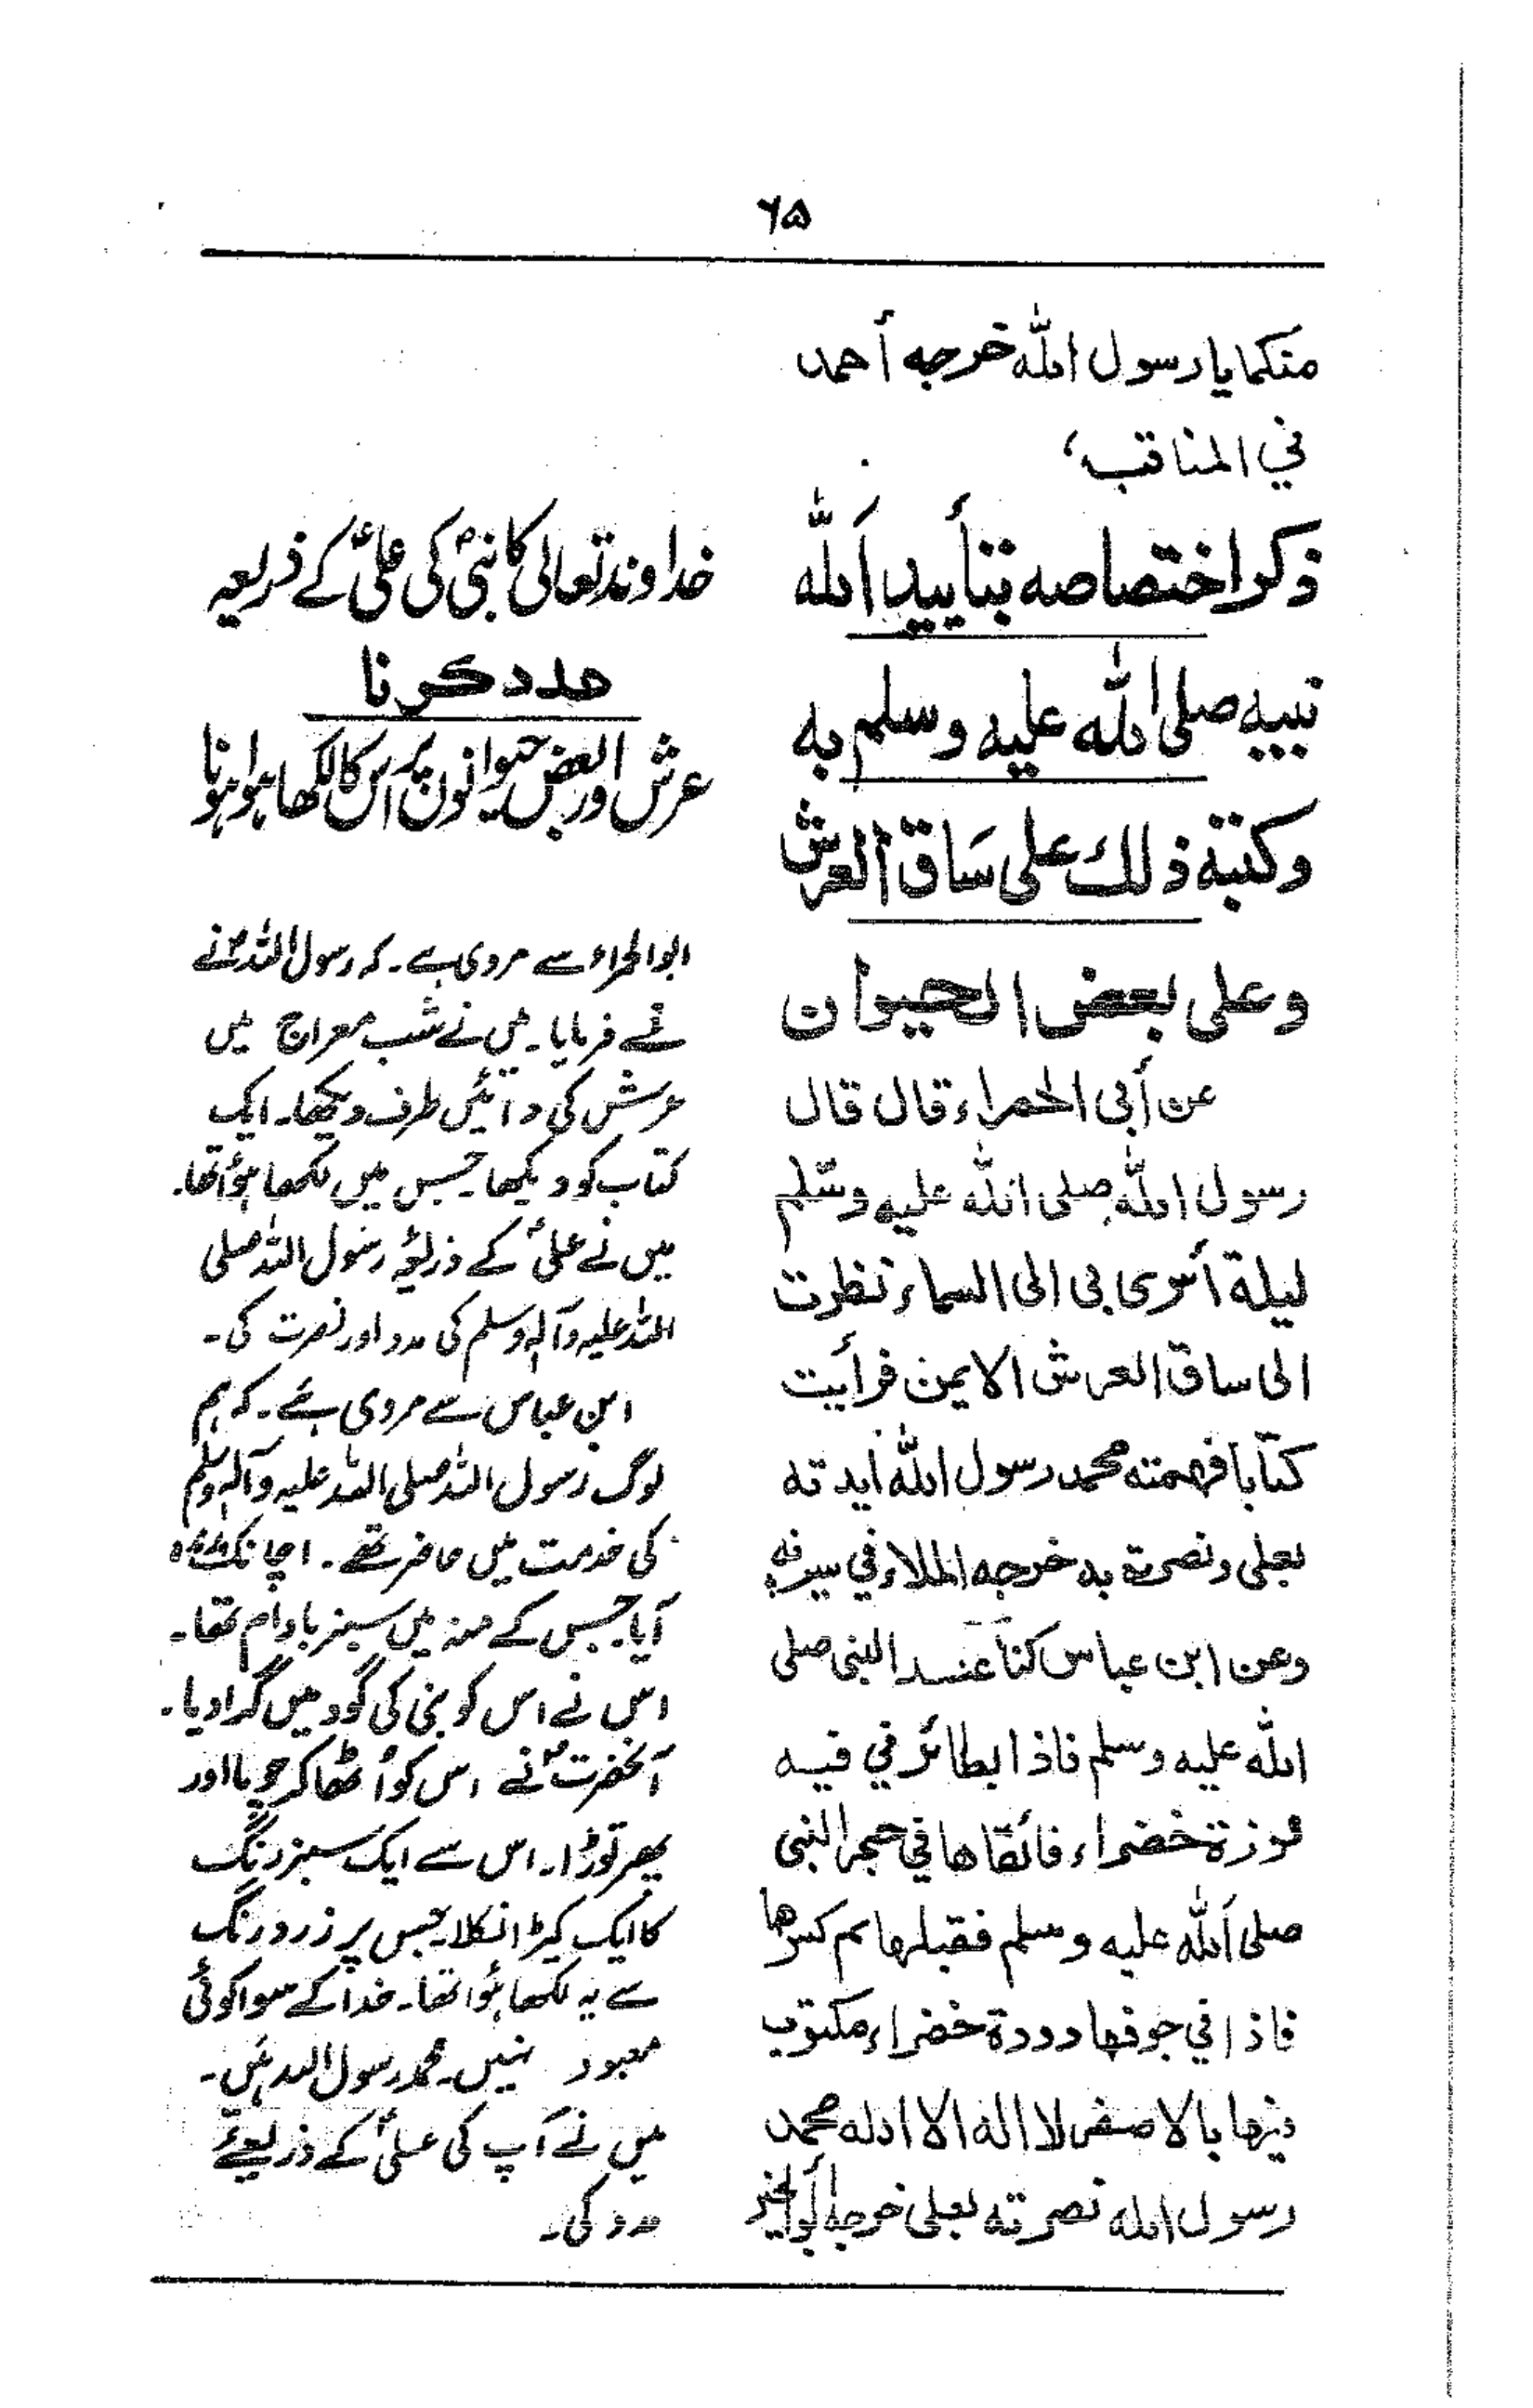 ۶۵
منكما يا رسول الله خرجه أحمد
في المناقب،
ذكر اختصاصه بتأييد الله
نبيه صلى الله عليه وسلم به
وكتبة ذلك على ساق العرش
وعلى بعض الحيوان
عن أبى الحمراء قال قال
رسول الله صلى الله عليه وسلم
ليلة أسرى بى الى السماء نظرت
الى ساق العرش الايمن فرأيت
كتابا فهمته محمد رسول الله أيدته
بعلى ونصرته به خرجه الملاء في سيرته
وعن ابن عباس كنا عند النبى صلى
الله عليه وسلم فاذا بطائر في فيه
لوزة خضراء فألقاها في حجر النبى
صلى الله عليه وسلم فقبلها ثم كسرها
فاذا في جوفها دودة خضراء مكتوب
فيها بالاصفر لا اله الا الله محمد
رسول الله نصرته بعلى خرجه أبو الخير
خداوند تعالی کا نبیؐ کی علیؑ کے ذریعہ
مدد کرنا
عرش اور بعض حیوانوں پر اس کا لکھا ہوا ہونا
ابو الحمراء سے مروی ہے۔ کہ رسول اللہؐ نے
نے فرمایا۔ میں نے شب معراج میں
عرش کی دائیں طرف دیکھا۔ ایک
کتاب کو دیکھا۔ جس میں لکھا ہؤا تھا۔
میں نے علیؑ کے ذریعہ رسول اللہ صلی
اللہ علیہ وآلہ وسلم کی مدد اور نصرت کی۔
ابن عباس سے مروی ہے۔ کہ ہم
لوگ رسول اللہ صلی اللہ علیہ وآلہ وسلم
کی خدمت میں حاضر تھے۔ اچانک
آیا۔ جس کے منہ میں سبز بادام تھا۔
اس نے اس کو نبی کی گود میں گرا دیا۔
آنحضرتؐ نے اس کو اُٹھا کر چوما اور
پھر توڑا۔ اس سے ایک سبز رنگ
کا ایک کیڑا نکلا۔ جس پر زرد رنگ
سے یہ لکھا ہؤا تھا۔ خدا کے سوا کوئی
معبود نہیں۔ محمد رسول اللہ ہیں۔
میں نے آپ کی علیؑ کے ذریعے
مدد کی۔